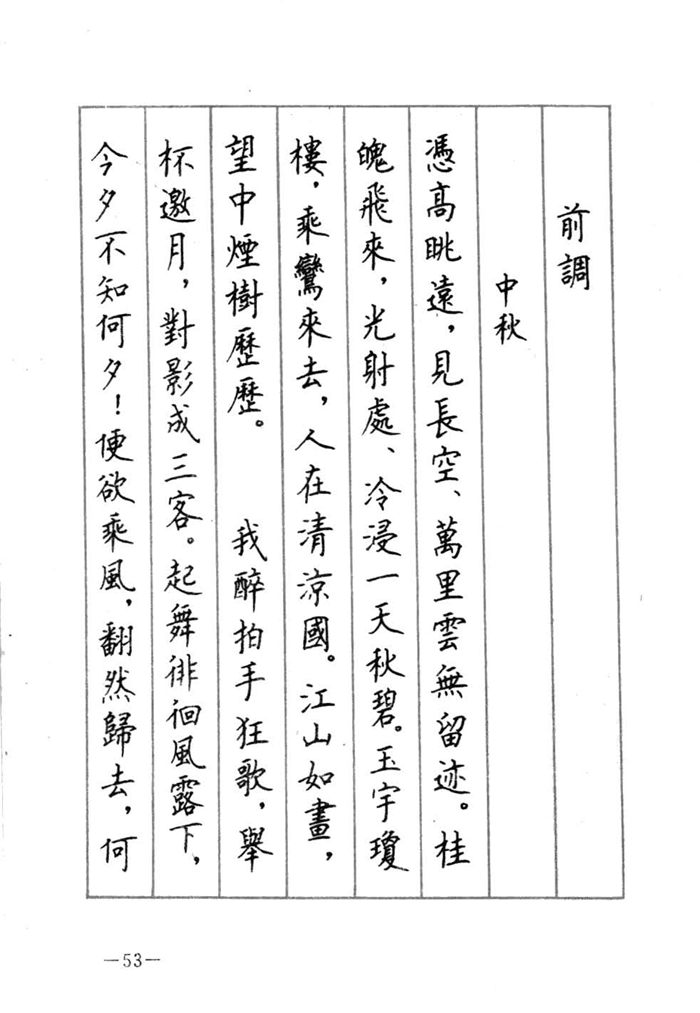 前調
中秋
憑高眺遠，見長空、萬里雲無留迹。桂
魄飛來，光射處、冷浸一天秋碧。玉宇瓊
樓，乘鸞來去，人在清涼國。江山如畫，
望中煙樹歷歷。　　我醉拍手狂歌，舉
杯邀月，對影成三客。起舞徘徊風露下，
今夕不知何夕！便欲乘風，翻然歸去，何
—53—